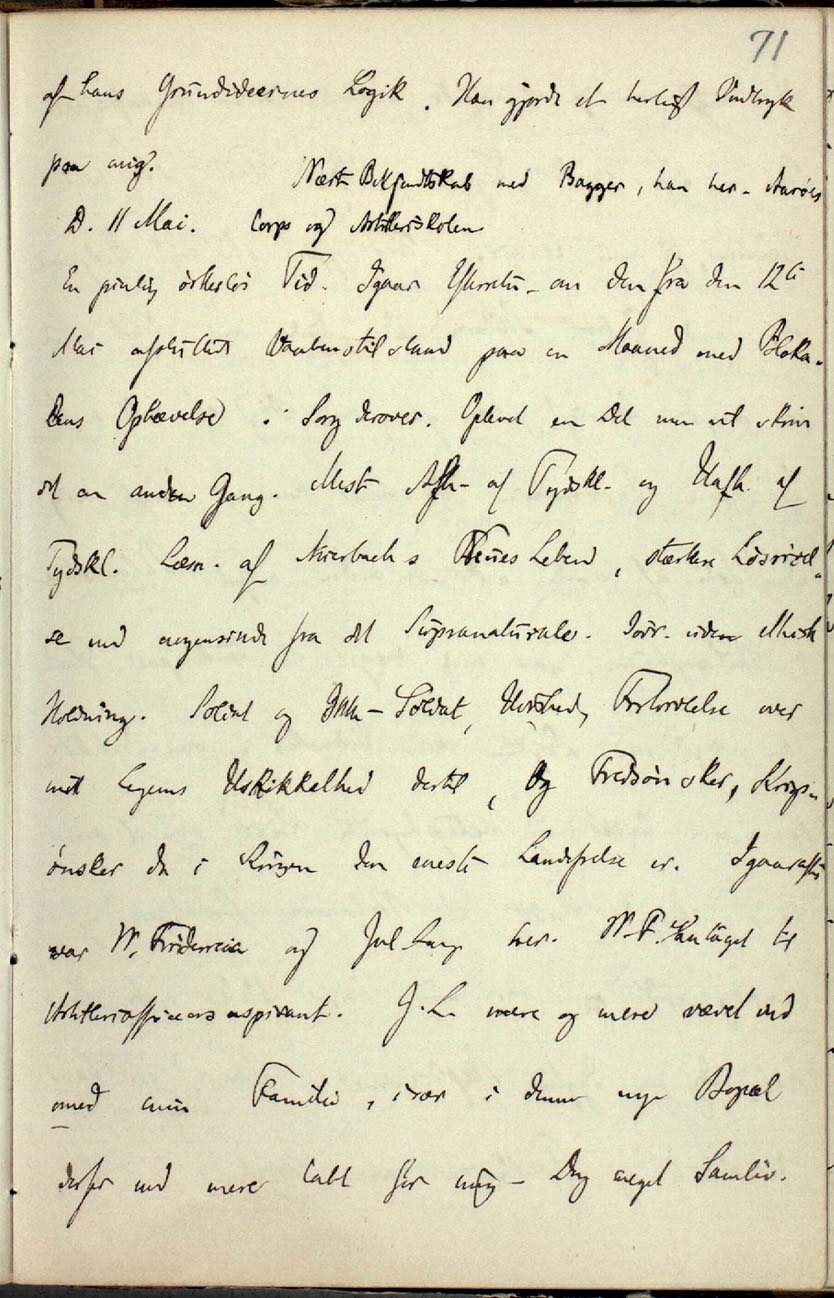 71
af hans Grundideernes Logik. Han gjorde et herligt Indtryk
paa mig.
Næste Bekjendtskab med Bagger, han her-
D. 11 Mai. Corps og Artilleriskolen
En pinlig Tid. Igaar om den fra den 12te
Mai afsluttede Vaabenstilstand paa en Maaned med Bloka-
dens Ophævelse i Sorg derover. Oplevet en Del men vil skrive
det en anden Gang. Mest Afh- af Tydskl- og Uafh. af
Tydskl. Læsn. af Auerbachs Neues Leben, stærkere Løsrivel-
se end nogensinde fra det Supranaturale. uden
Holdning. Soldat og Ikke-Soldat, Uvished, Fortvivlelse over
mit Legems Uskikkethed dertil, Og Fredsønsker, Krigs-
ønsker da i Krigen den eneste Landsfrelse er. Igaaraftes
var W. Fridericia og Jul Lange her. W.F. antaget til
Artilleriofficersaspirant. J.L. mere og mere vævet ind
med min Familie, især i denne nye Bopæl
derfor end mere tabt for mig - Dog meget Samliv.